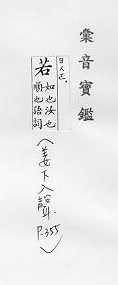 彙音寶鑑
日入正。
若
如也汝也
順也語詞
(姜下入聲
P.355)